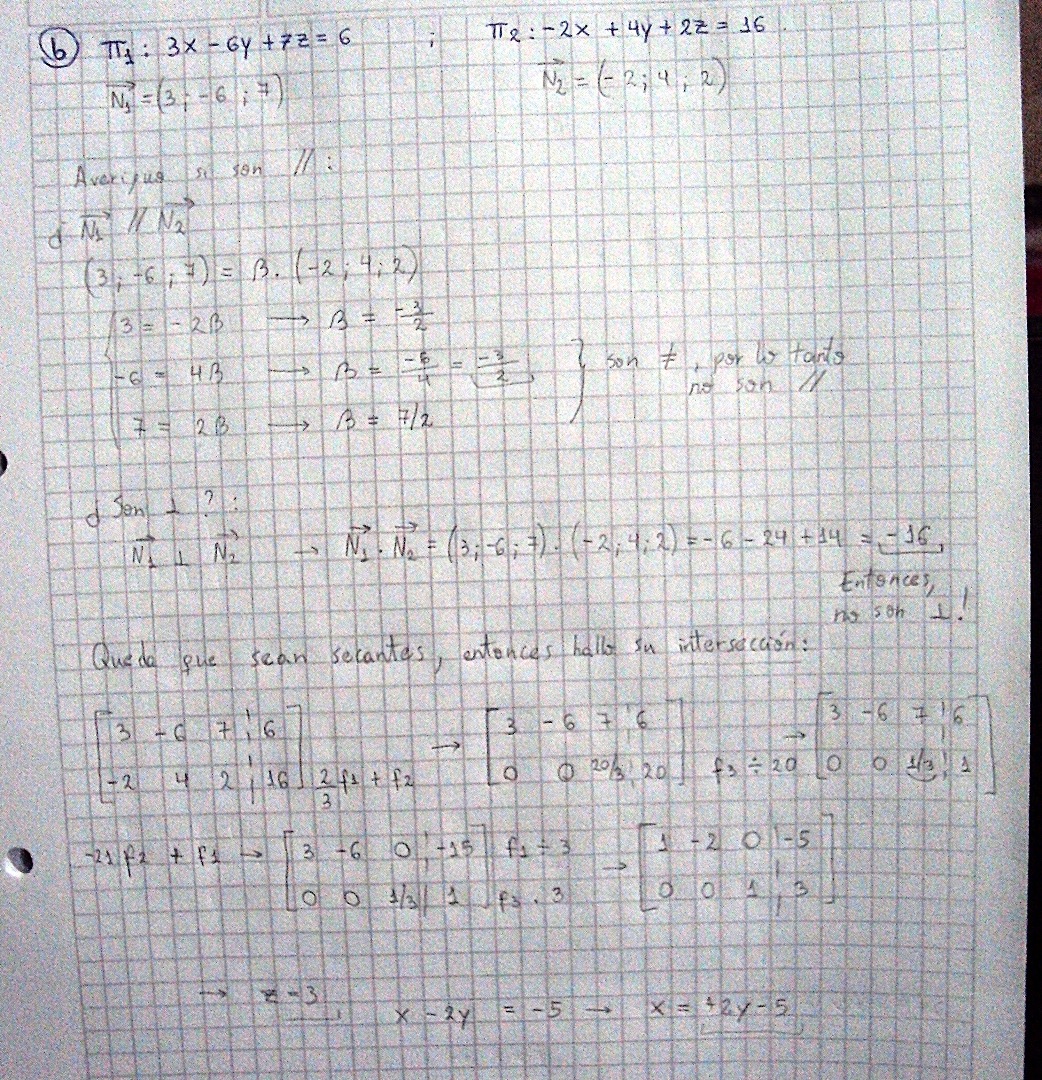 b) π1: 3x - 6y + 7z = 6 ; π2: -2x + 4y + 2z = 16
N1 = (3; -6; 7) N2 = (-2; 4; 2)
Averiguo si son // :
¿ N1 // N2
(3; -6; 7) = β. (-2; 4; 2)
3 = -2β → β = -3/2
-6 = 4β → β = -6/4 = -3/2 } son ≠, por lo tanto no son //
7 = 2β → β = 7/2
¿ Son ⊥ ? :
N1 ⊥ N2 → N1 . N2 = (3; -6; 7) . (-2; 4; 2) = -6 - 24 + 14 = -16
Entonces,
no son ⊥!
Queda que sean secantes, entonces hallo su intersección:
[3 -6 7 | 6] → [3 -6 7 | 6] → [3 -6 7 | 6]
[-2 4 2 | 16] 2/3 f1 + f2 [0 0 20/3 | 20] f3 ÷ 20 [0 0 1/3 | 1]
-21 f2 + f1 → [3 -6 0 | -15] f1 ÷ 3 → [1 -2 0 | -5]
[0 0 1/3 | 1] f3 . 3 [0 0 1 | 3]
→ z = 3 x - 2y = -5 → x = +2y - 5